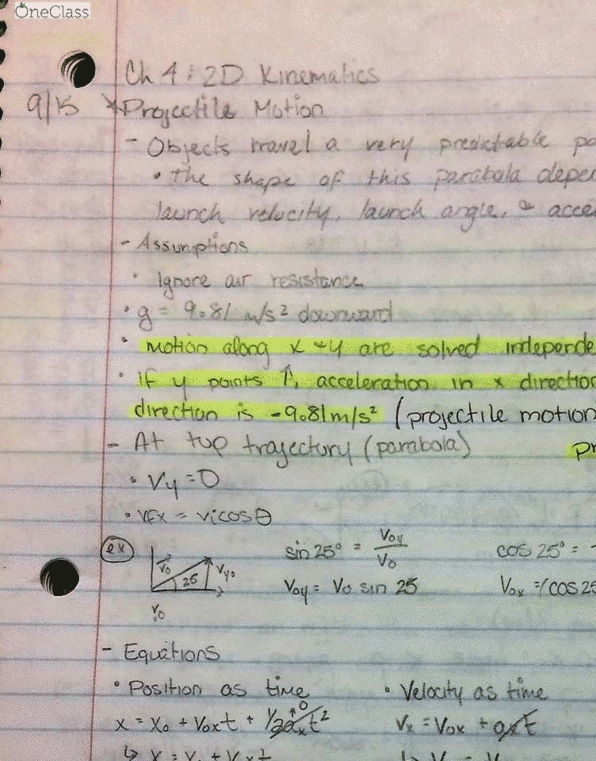 OneClass
Ch 4: 2D Kinematics
9/15 *Projectile Motion
- Objects travel a very predictable pa
• the shape of this parabola depen
launch velocity, launch angle, & accel
- Assumptions
• Ignore air resistance
• g = 9.81 m/s² downward
• motion along x + y are solved independe
• if y points ↑, acceleration in x direction
direction is -9.81m/s² (projectile motion
- At top trajectory (parabola)
pr
• Vy = 0
• VFX = vicosθ
ex
V₀ 25 Vy₀
V₀
sin 25° = V₀y/V₀
cos 25° =
V₀y = V₀ sin 25
V₀x = (cos 25
- Equations
• Position as time • Velocity as time
x = x₀ + V₀xt + ½aₓt² 0
Vₓ = V₀x + aₓt